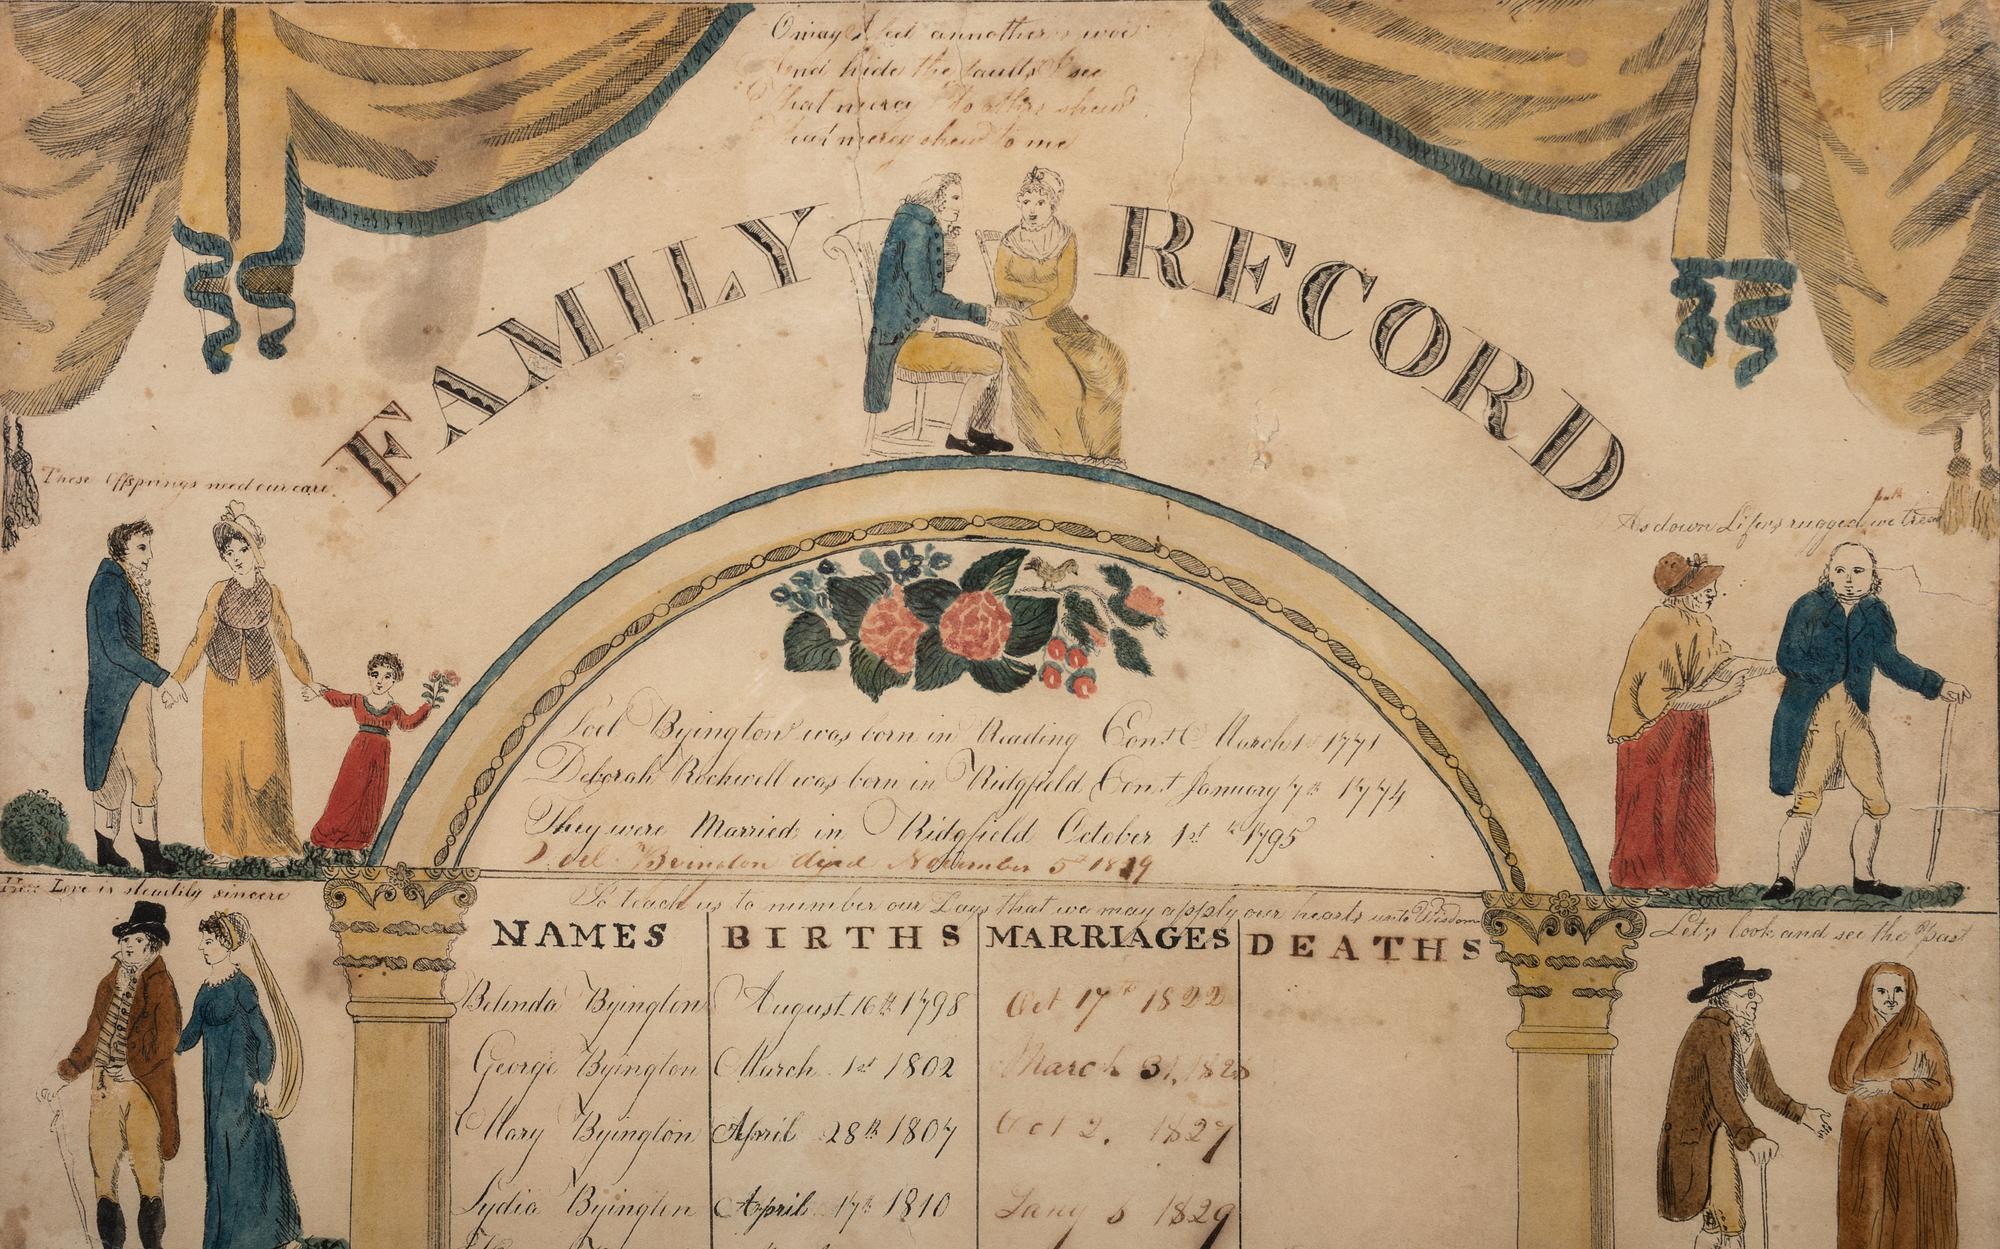 O may I feel annother's woe
And hide the faults I see
That mercy I to others shew
That mercy shew to me
FAMILY RECORD
These Offsprings need our care.
path
As down Lifes rugged we tread
Joel Byington was born in Reading Cont March 1st 1771
Deborah Rockwell was born in Ridgfield Cont January 7th 1774
They were Married in Ridgfield October 1st 1795
Joel Byington died November 5th 1829
Love is steadily sincere
So teach us to number our Days that we may apply our hearts unto Wisdom
Let's look and see the past
NAMES BIRTHS MARRIAGES DEATHS
Belinda Byington August 16th 1798 Oct 17th 1822
George Byington March 1st 1802 March 31, 1828
Mary Byington April 28th 1807 Oct 2, 1827
Lydia Byington April 17th 1810 Jany 6 1829